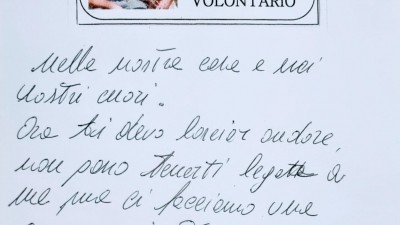 VOLONTARIO
Nelle nostre case e nei
nostri cuori.
Ora ti devo lasciar andare,
non posso tenerti legata a
me ma ci facciamo una